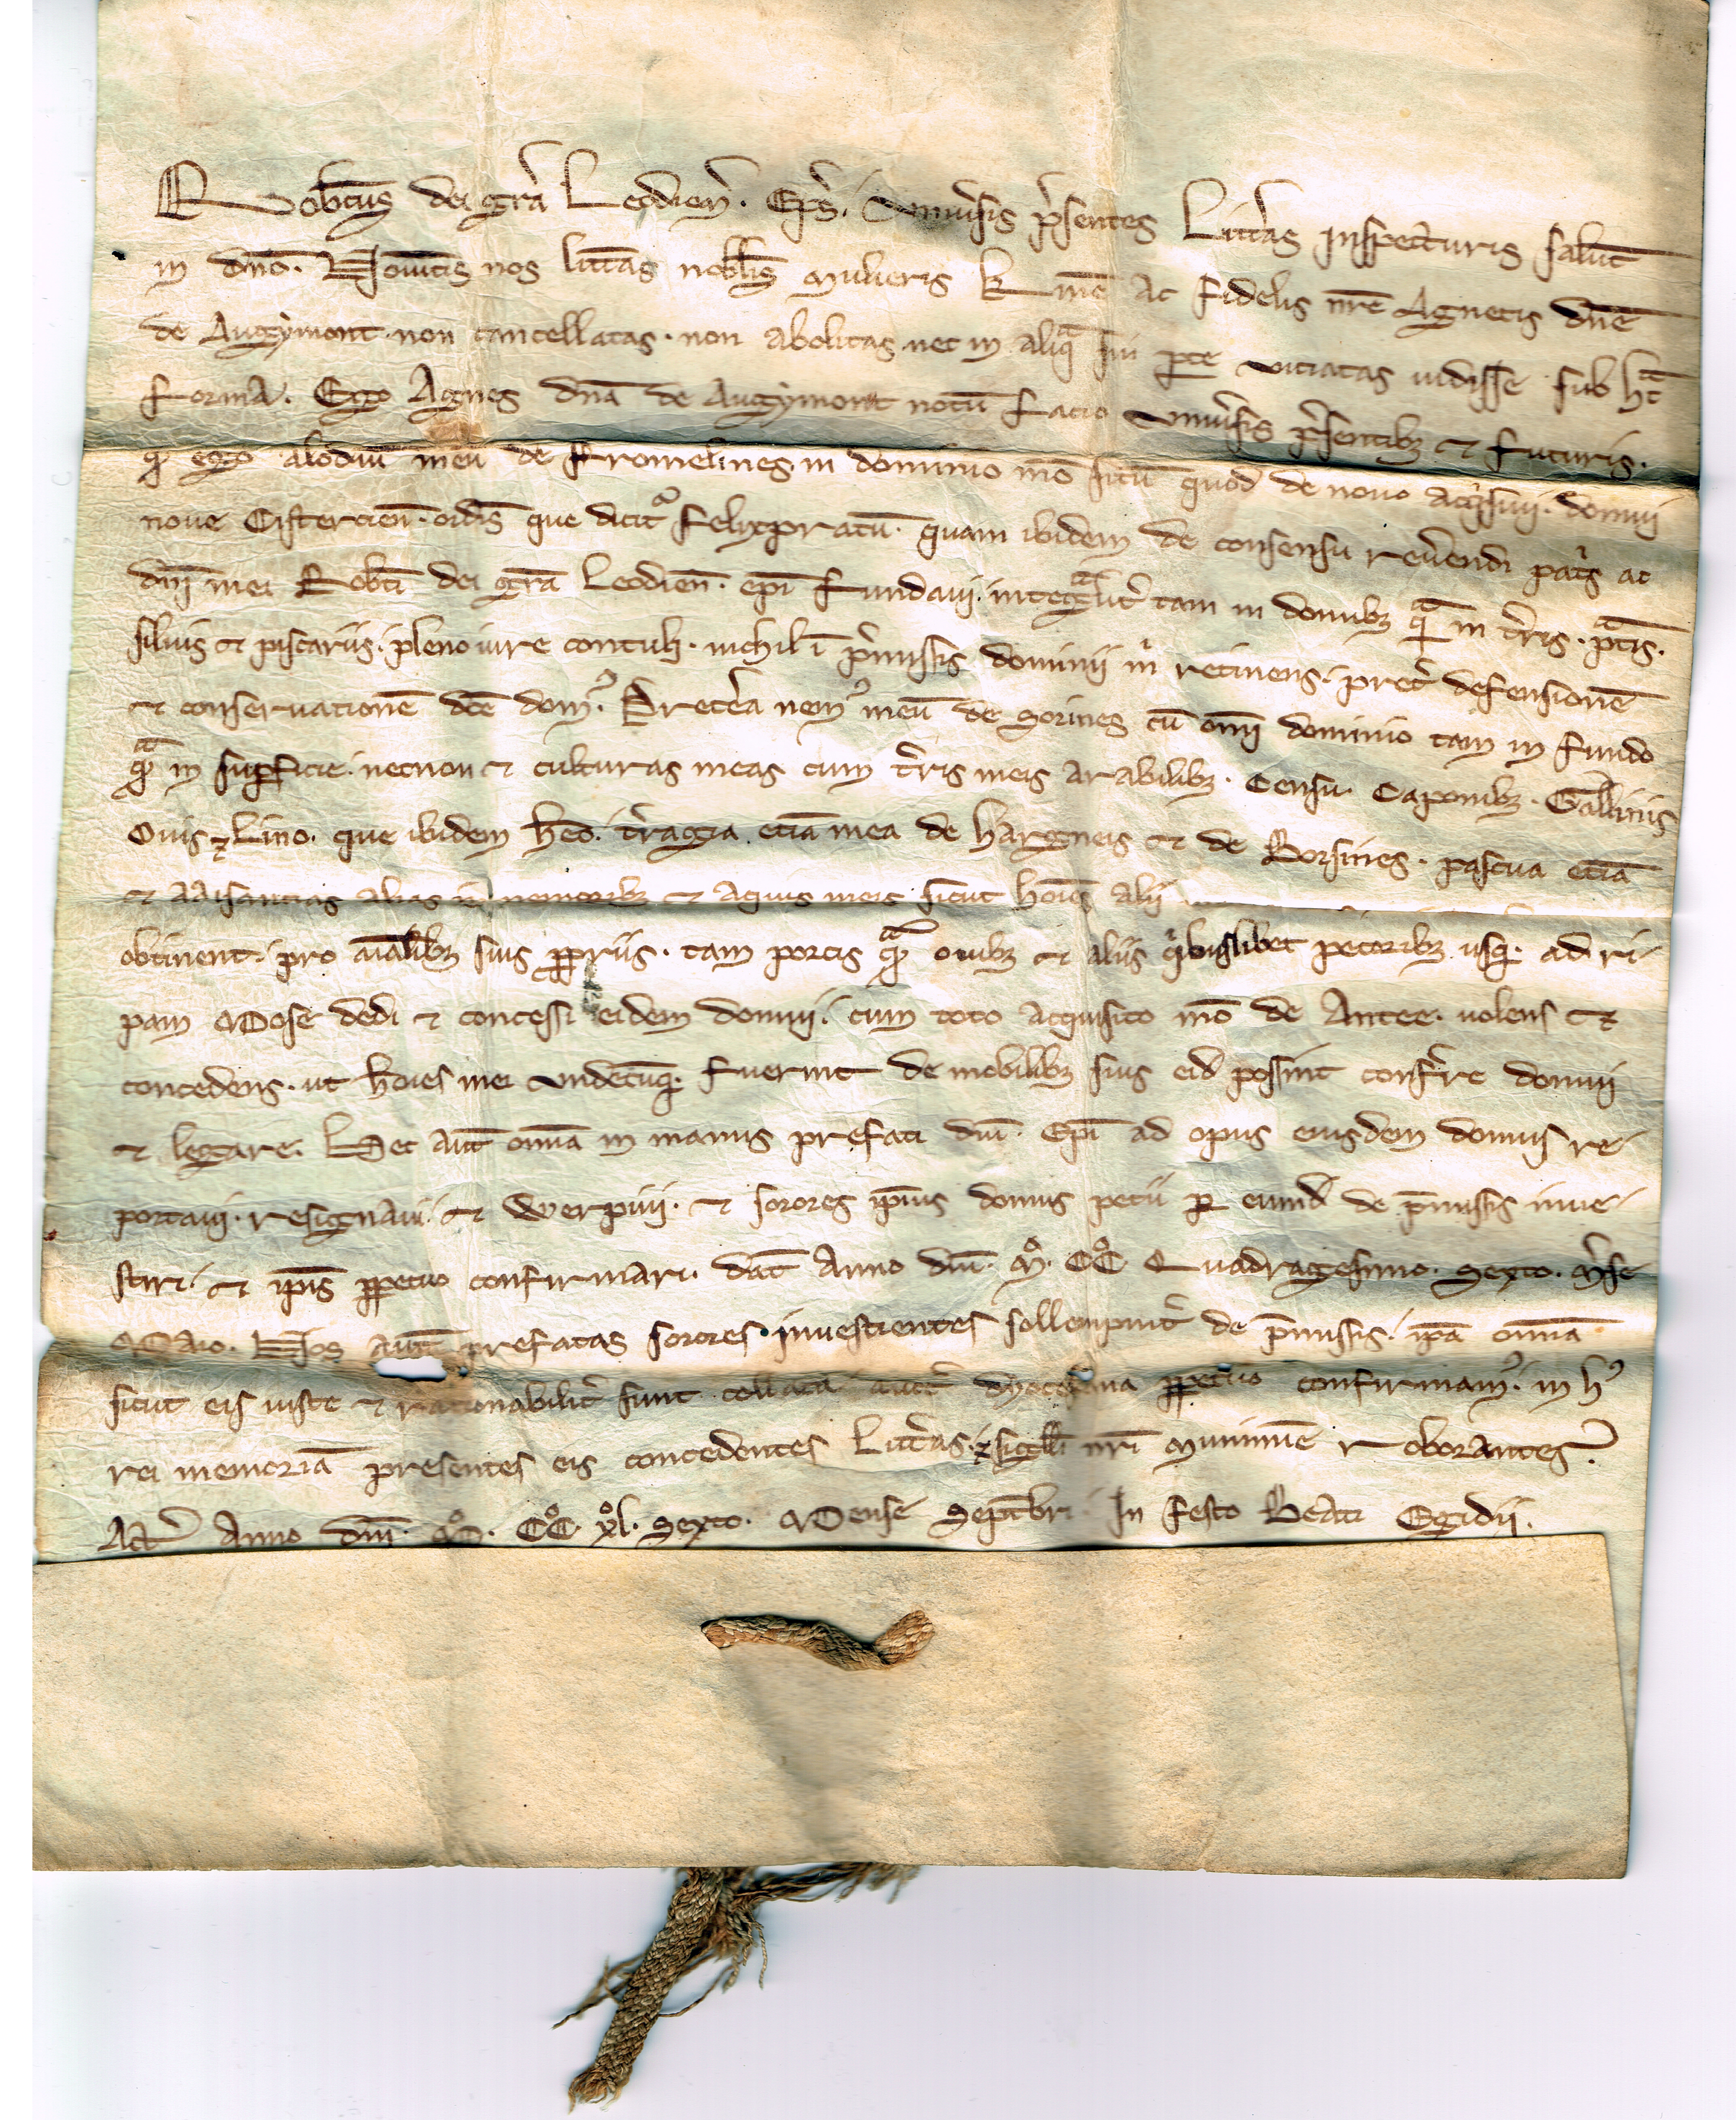 Robtus dei gr̄a Leodien̄. Ep̄s. Univ̉sis p̉sentes Litt̉as inspecturis salūt
in dn̄o. Nov̉itis nos litt̉as nobil̄ mulieris k̄me ac fidelis nr̄e Agnetis dn̄e
de Augymont. non cancellatas. non abolitas nec in aliqͣ sui ꝑte viciatas vidisse sub hͣc
forma. Ego Agnes dn̄a de Augymont notū facio univ̉sis p̉sentibꝫ et futuris.
qd̄ ego alodiū meū de Fromelines in dominio m̄o sitū quod de novo acq̉sivi. domui
nove Cistercien̄. ordīs que dicitͬ Felixpratū. quam ibidem de consensu rev̉endi patͥs ac
dn̄i mei Robt̄i dei gr̄a Leodien̄. ep̄i fundavi. integͣlit̉ tam in domibꝫ qͣm in t̉ris. pͣtis.
silvis et piscariis. pleno iure contuli. nichil ī p̉missis dominii m̉ retinens. pret̉ defensionē
et conservationē dc̄e domꝰ. Pret̉ea nemꝰ meū de Sorines cū om̄i dominio tam in fundo
qͣm in suꝑficie. necnon et culturas meas cum t̉ris meis arabilibꝫ. Censu. Caponibꝫ. Gallinis
Ovis ⁊ Lino. que ibidem hēo. t̉ragia etiā mea de hargneis et de Borsines. pascua etiā
et aaisantias alias in nemoribꝫ et aquis meis sicut hoīes alii
obtinent. pro aīalibꝫ suis ꝓpriis. tam porcis qͣm ovibꝫ et aliis q̉buslibet pecoribꝫ usqꝫ ad ri-
pam Mose dedi et concessi eidem domui. cum toto acquisito m̄o de Antee. volens et
concedens. ut hoīes mei undecūqꝫ fuerint de mobilibꝫ suis eid̄ possint conf̉re domui
et legare. Hec aūt om̄ia in manus prefati dn̄i. Ep̄i ad opus eiusdem domus re-
portavi. resignavi. et werpivi. et sorores ip̄ius domus petii ꝑ eund̄ de p̄missis inve-
stiri. et ip̄is ꝑpetuo confirmari. dat̄ Anno dn̄i. Mͦ. CCͦ. Quadragesimo. Sexto. m̄se
Maio. Nos aūt prefatas sorores. investientes sollempnit̉ de p̄missis. ip̄a om̄ia
sicut eis iuste et rationabilit̉ sunt collata auct̉ dyocesana ꝑpetuo confirmamꝰ. in hꝰ
rei memoriā presentes eis concedentes Litt̉as. ⁊ sigilli nr̄i munimine roborantes.
Act̉ Anno dn̄i. Mͦ. CCͦ. xͦl. Sexto. Mense Septēbri. In festo Beati Egidii.